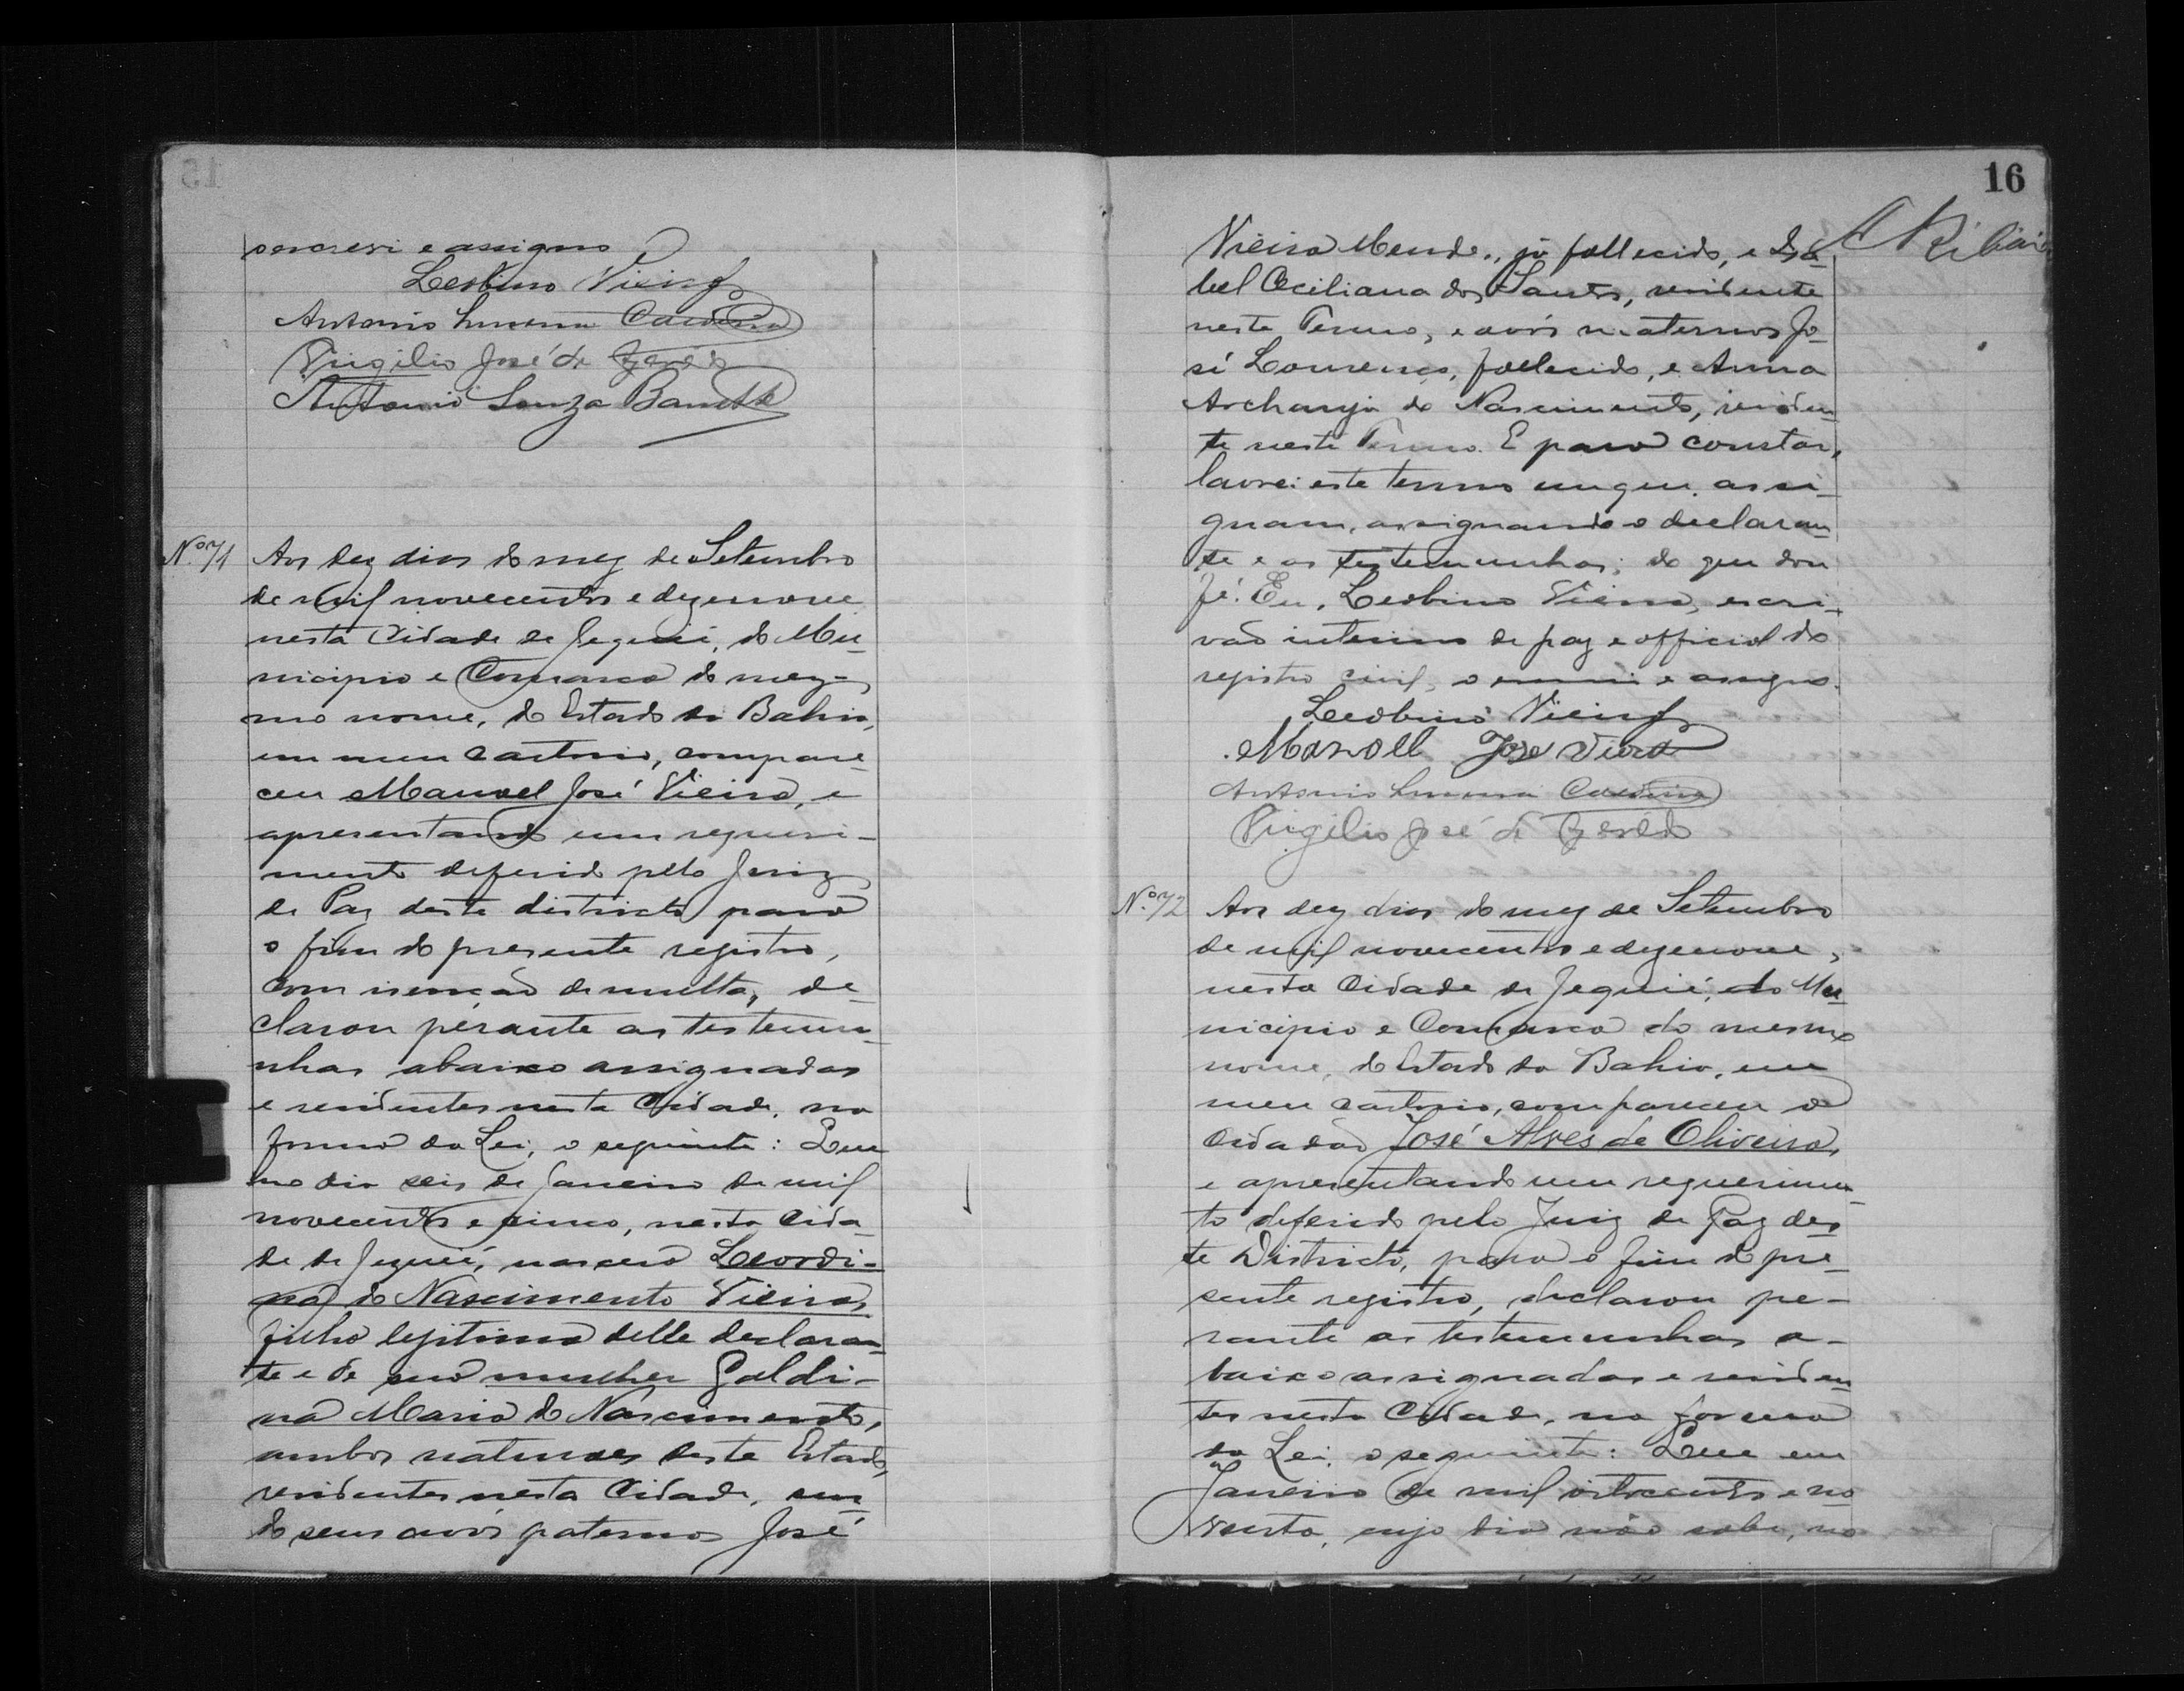 escrevi e assigno
Leolino Vieira
Antonio Lucena
Virgilio José de Azevêdo
Antonio Souza Barretto
Nº 71
Aos dez dias do mez de Setembro
de mil novecentos e dezenove
nesta Cidade de Jequié, do Mu-
nicipio e Comarca do mez-
mo nome, do Estado da Bahia,
em meu cartorio, compare-
ceu Manoel José Vieira, e
apresentando um requeri-
mento deferido pelo Juiz
de Paz deste districto para
o fim do presente registro,
com isenção de multa, de-
clarou perante as testemu-
nhas abaixo assignadas
e residentes nesta Cidade, na
forma da Lei, o seguinte: Que
no dia seis de Janeiro de mil
novecentos e cinco, nesta Cida-
de de Jequié, nasceu Leordi-
na do Nascimento Vieira,
filha legitima delle declaran-
te e de sua mulher Galdi-
na Maria do Nascimento,
ambos naturaes deste Estado,
residentes nesta Cidade, sen-
do seus avós paternos José
16
Vieira Mendes, já fallecido, e Isa-
bel Ceciliana dos Santos, residente
neste Termo, e avós maternos Jo-
sé Lourenço, fallecido, e Anna
Archanja do Nascimento, residen-
te neste Termo. E para constar,
lavrei este termo em que assi-
gnam, assignando o declaran-
te e as testemunhas; do que dou
fé. Eu, Leolino Vieira, escri-
vão interino de paz e official do
registro civil, o escrevi e assigno.
Leolino Vieira
Manoell José Vieira
Antonio Lucena
Virgilio José de Azevêdo
Nº 72
Aos dez dias do mez de Setembro
de mil novecentos e dezenove,
nesta Cidade de Jequié, do Mu-
nicipio e Comarca do mesmo
nome, do Estado da Bahia, em
meu cartorio, compareceu o
cidadão José Alves de Oliveira,
e apresentando um requerimen-
to deferido pelo Juiz de Paz des-
te Districto, para o fim do pre-
sente registro, declarou pe-
rante as testemunhas a-
baixo assignadas e residen-
tes nesta Cidade, na forma
da Lei, o seguinte: Que em
Janeiro de mil oitocentos e no-
venta, cujo dia não sabe, no